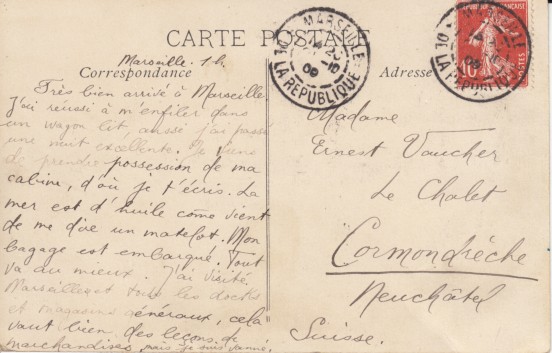 CARTE POSTALE
Correspondance
Adresse
MARSEILLE
LA REPUBLIQUE
09
MARSEILLE
LA REPUBLIQUE
FRANÇAISE
POSTES
10
Marseille. 1h.
Très bien arrivé à Marseille
J'ai réussi à m'enfiler dans
un wagon lit, aussi j'ai passé
une nuit excellente. Je viens
de prendre possession de ma
cabine, d'où je t'écris. La
mer est d'huile come vient
de me dire un matelot. Mon
bagage est embarqué. Tout
va du mieux. J'ai visité
Marseille et tous les docks
et magasins généraux, cela
vaut bien des leçons de
marchandises, mais je suis vanné.
Madame
Ernest Vaucher
Le Chalet
Cormondrèche
Neuchâtel
Suisse.